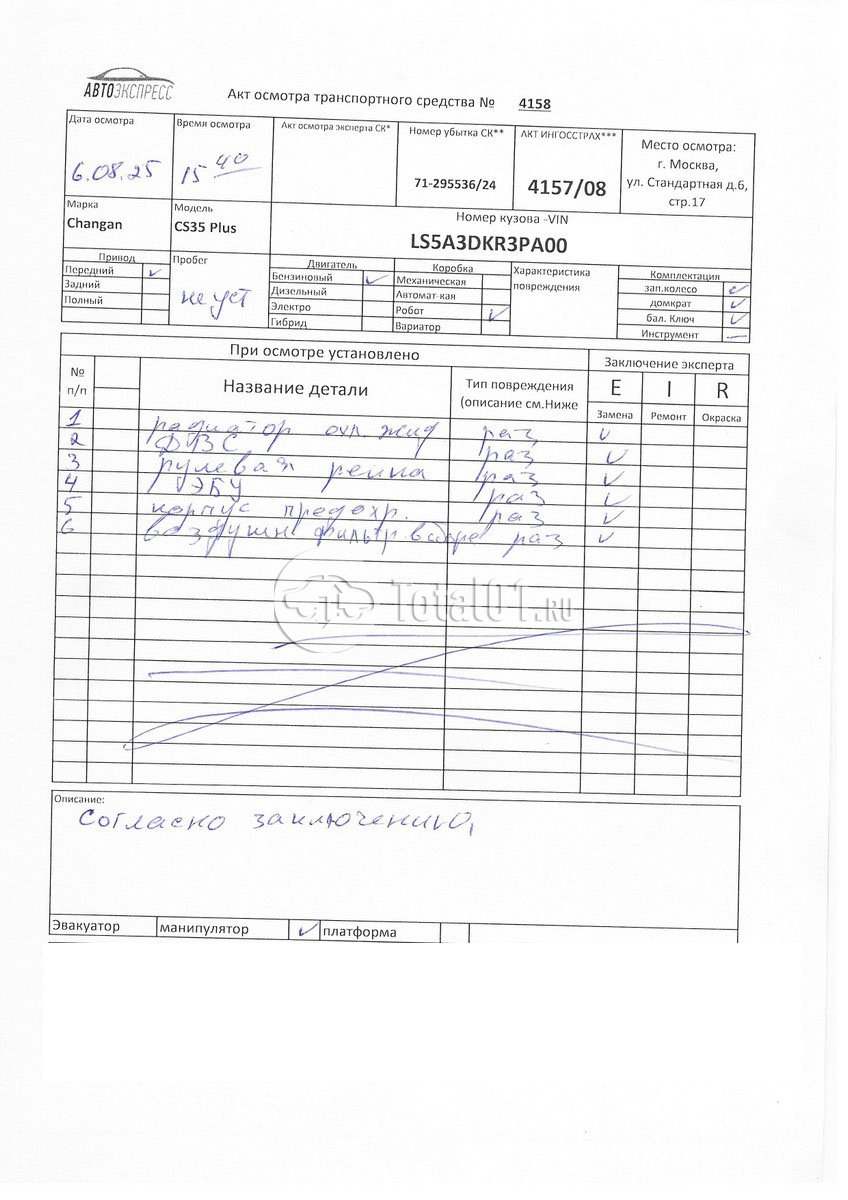 АВТОЭКСПРЕСС
Акт осмотра транспортного средства № 4158
Дата осмотра
6.08.25
Время осмотра
15 40
Акт осмотра эксперта СК*
Номер убытка СК**
71-295536/24
АКТ ИНГОССТРАХ***
4157/08
Место осмотра:
г. Москва,
ул. Стандартная д.6,
стр.17
Марка
Changan
Модель
CS35 Plus
Номер кузова -VIN
LS5A3DKR3PA00
Привод
Передний ✓
Задний
Полный
Пробег
не уст
Двигатель
Бензиновый ✓
Дизельный
Электро
Гибрид
Коробка
Механическая
Автомат-кая
Робот ✓
Вариатор
Характеристика
повреждения
Комплектация
зап.колесо ✓
домкрат ✓
бал. Ключ ✓
Инструмент —
При осмотре установлено
Заключение эксперта
№
п/п
Название детали
Тип повреждения
(описание см.Ниже
E I R
Замена Ремонт Окраска
1 радиатор охл. жид раз ✓
2 ДВС раз ✓
3 рулевая рейка раз ✓
4 ЭБУ раз ✓
5 корпус предохр. раз ✓
6 воздушн фильтр. в сборе раз ✓
Total01.RU
Описание:
Согласно заключению,
Эвакуатор манипулятор ✓ платформа